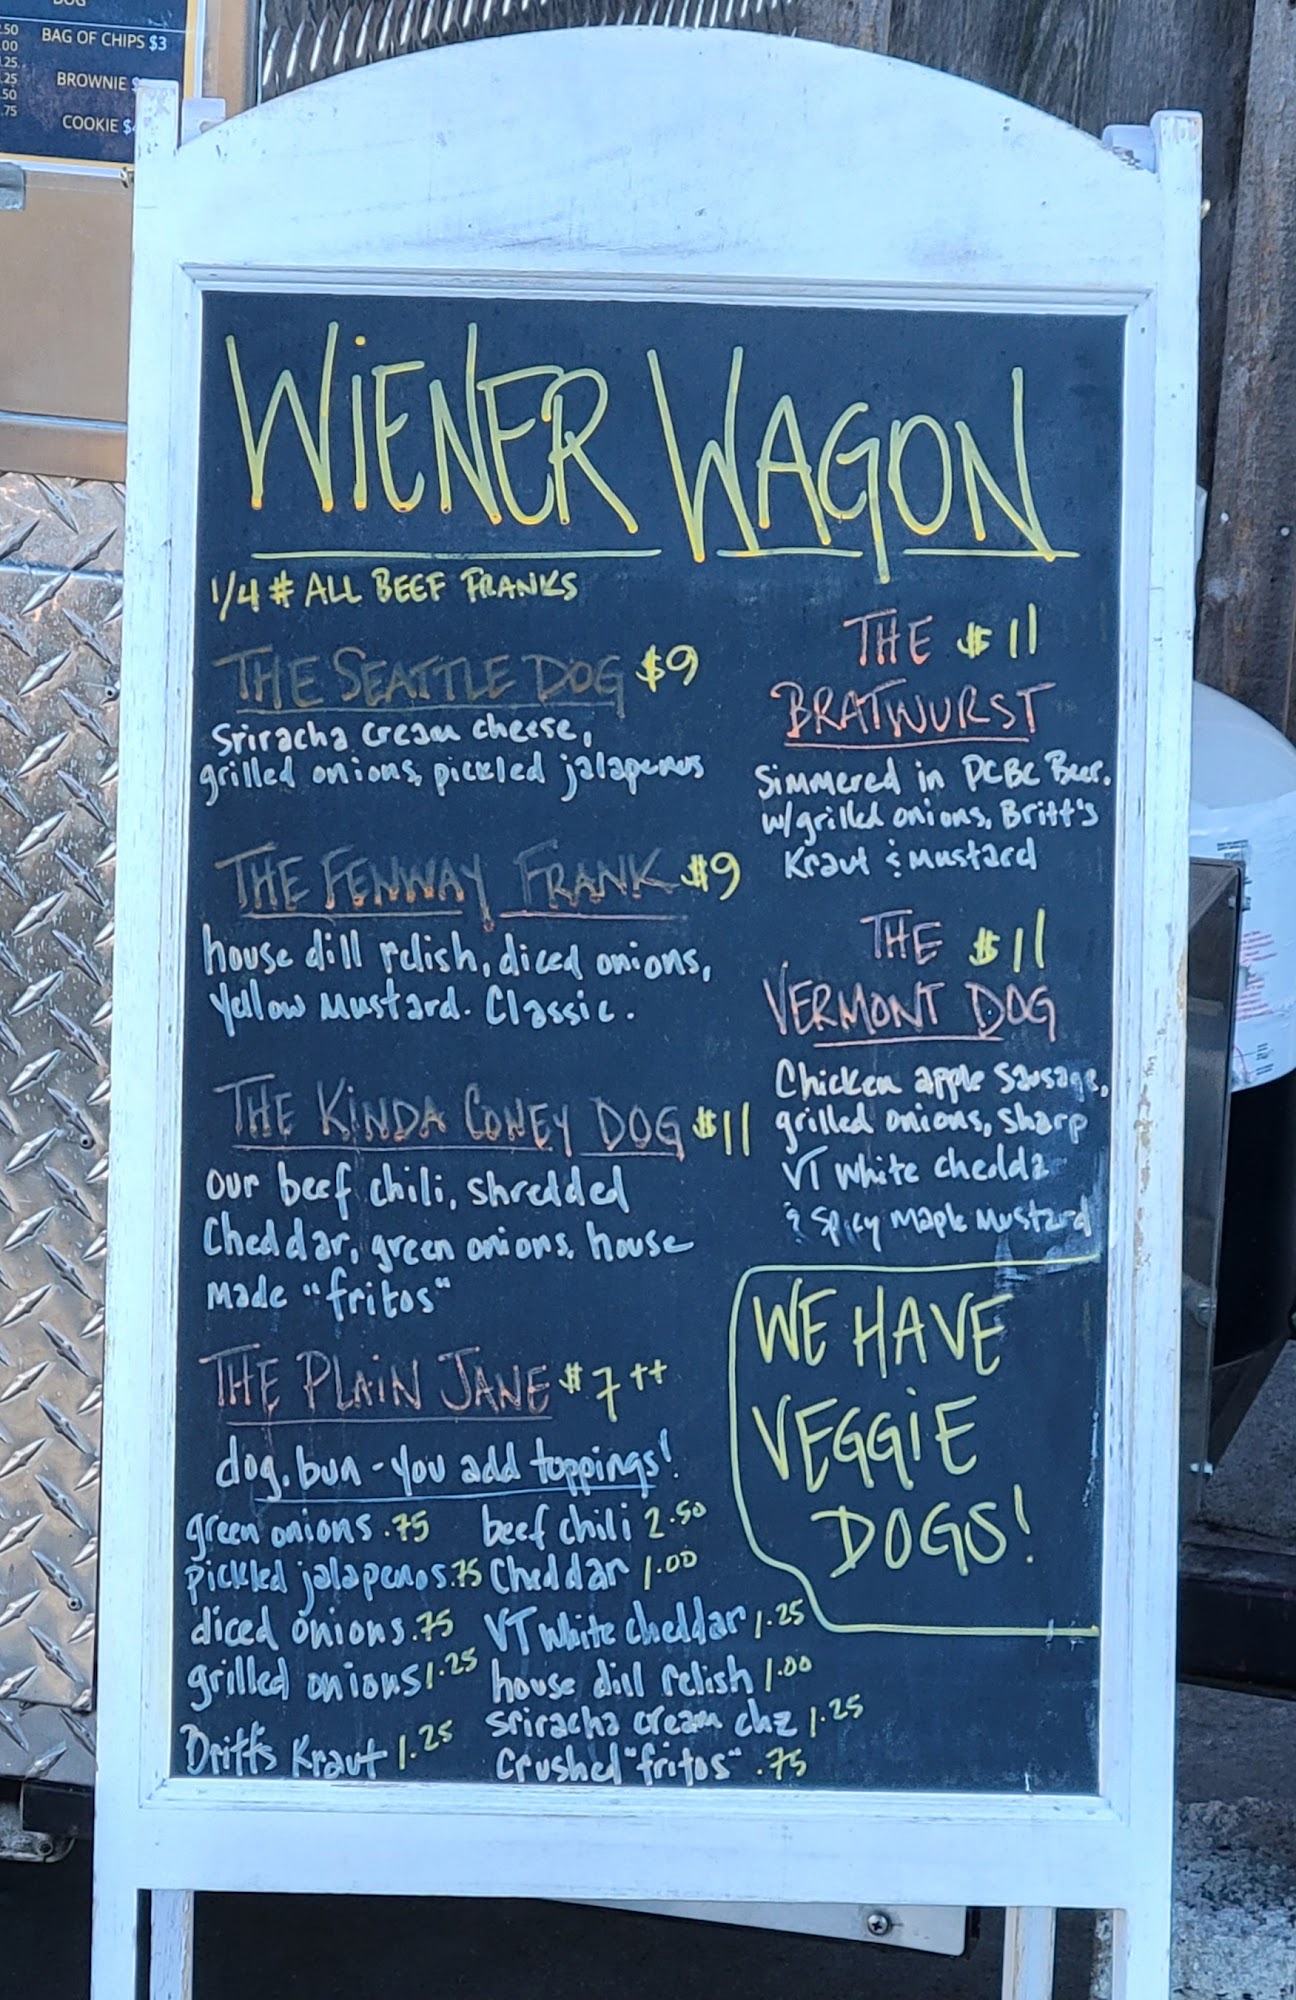 DOG
.50
.00
.25
.25
.50
.75
BAG OF CHIPS $3
BROWNIE
COOKIE
WIENER WAGON
1/4 # ALL BEEF FRANKS
THE SEATTLE DOG $9
Sriracha cream cheese,
grilled onions, pickled jalapenos
THE FENWAY FRANK $9
house dill relish, diced onions,
Yellow Mustard. Classic.
THE KINDA CONEY DOG $11
our beef chili, shredded
Cheddar, green onions, house
made "fritos"
THE PLAIN JANE $7++
dog, bun - you add toppings!
green onions .75
pickled jalapenos .75
diced onions .75
grilled onions 1.25
Britt's Kraut 1.25
beef chili 2.50
Cheddar 1.00
VT white cheddar 1.25
house dill relish 1.00
sriracha cream chz 1.25
Crushed "fritos" .75
THE $11
BRATWURST
Simmered in PCBC Beer.
w/grilled onions, Britt's
Kraut & Mustard
THE $11
VERMONT DOG
Chicken apple sausage,
grilled onions, sharp
VT white chedda
& Spicy Maple Mustard
WE HAVE
VEGGIE
DOGS!